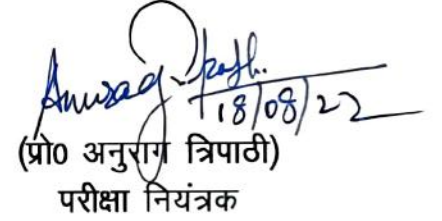 Anurag
18/08/22
(प्रो० अनुराग त्रिपाठी)
परीक्षा नियंत्रक